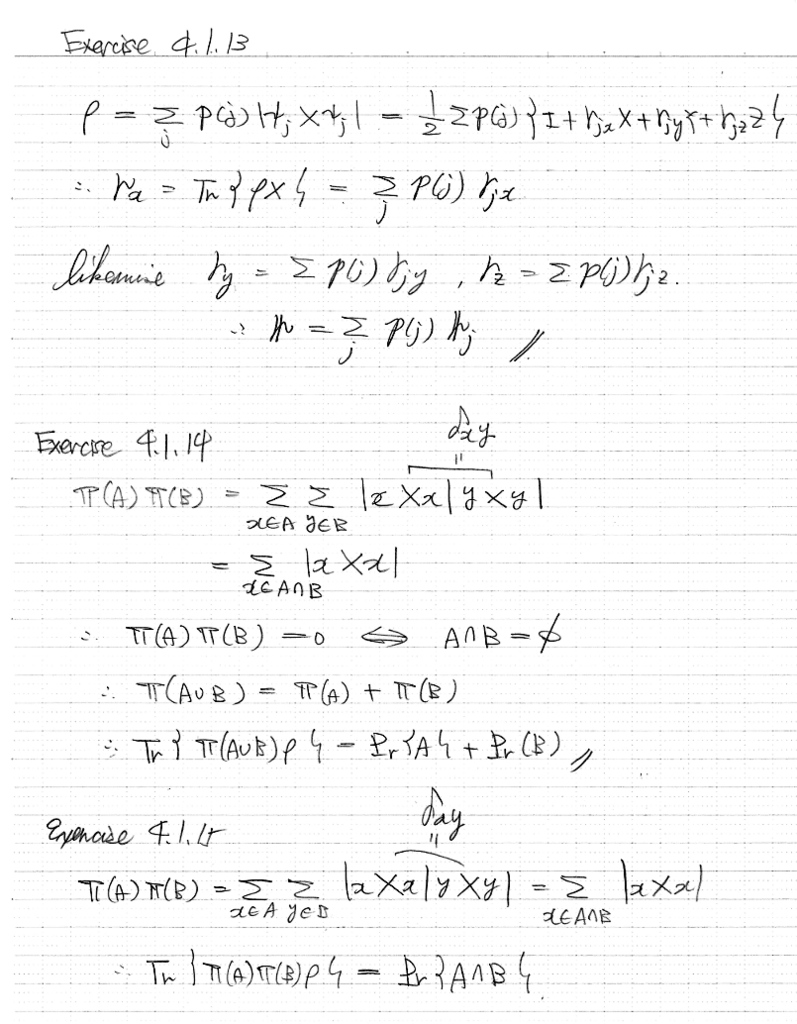 Exercise 4.1.13
ρ = Σ_j p(j) |ψ_j X ψ_j| = 1/2 Σ p(j) { I + r_jx X + r_jy Y + r_jz Z }
∴ r_x = Tr { ρX } = Σ_j p(j) r_jx
likewise r_y = Σ p(j) r_jy , r_z = Σ p(j) r_jz.
∴ 𝕣 = Σ_j p(j) 𝕣_j //
Exercise 4.1.14
δxy
=
Π(A) Π(B) = Σ_{x∈A} Σ_{y∈B} |x X x| y X y|
= Σ_{x∈A∩B} |x X x|
∴ Π(A) Π(B) = 0 ⇔ A∩B = ϕ
∴ Π(A∪B) = Π(A) + Π(B)
∴ Tr { Π(A∪B) ρ } = Pr{A} + Pr(B) //
Exercise 4.1.15
δxy
=
Π(A) Π(B) = Σ_{x∈A} Σ_{y∈B} |x X x| y X y| = Σ_{x∈A∩B} |x X x|
∴ Tr { Π(A) Π(B) ρ } = Pr {A∩B}